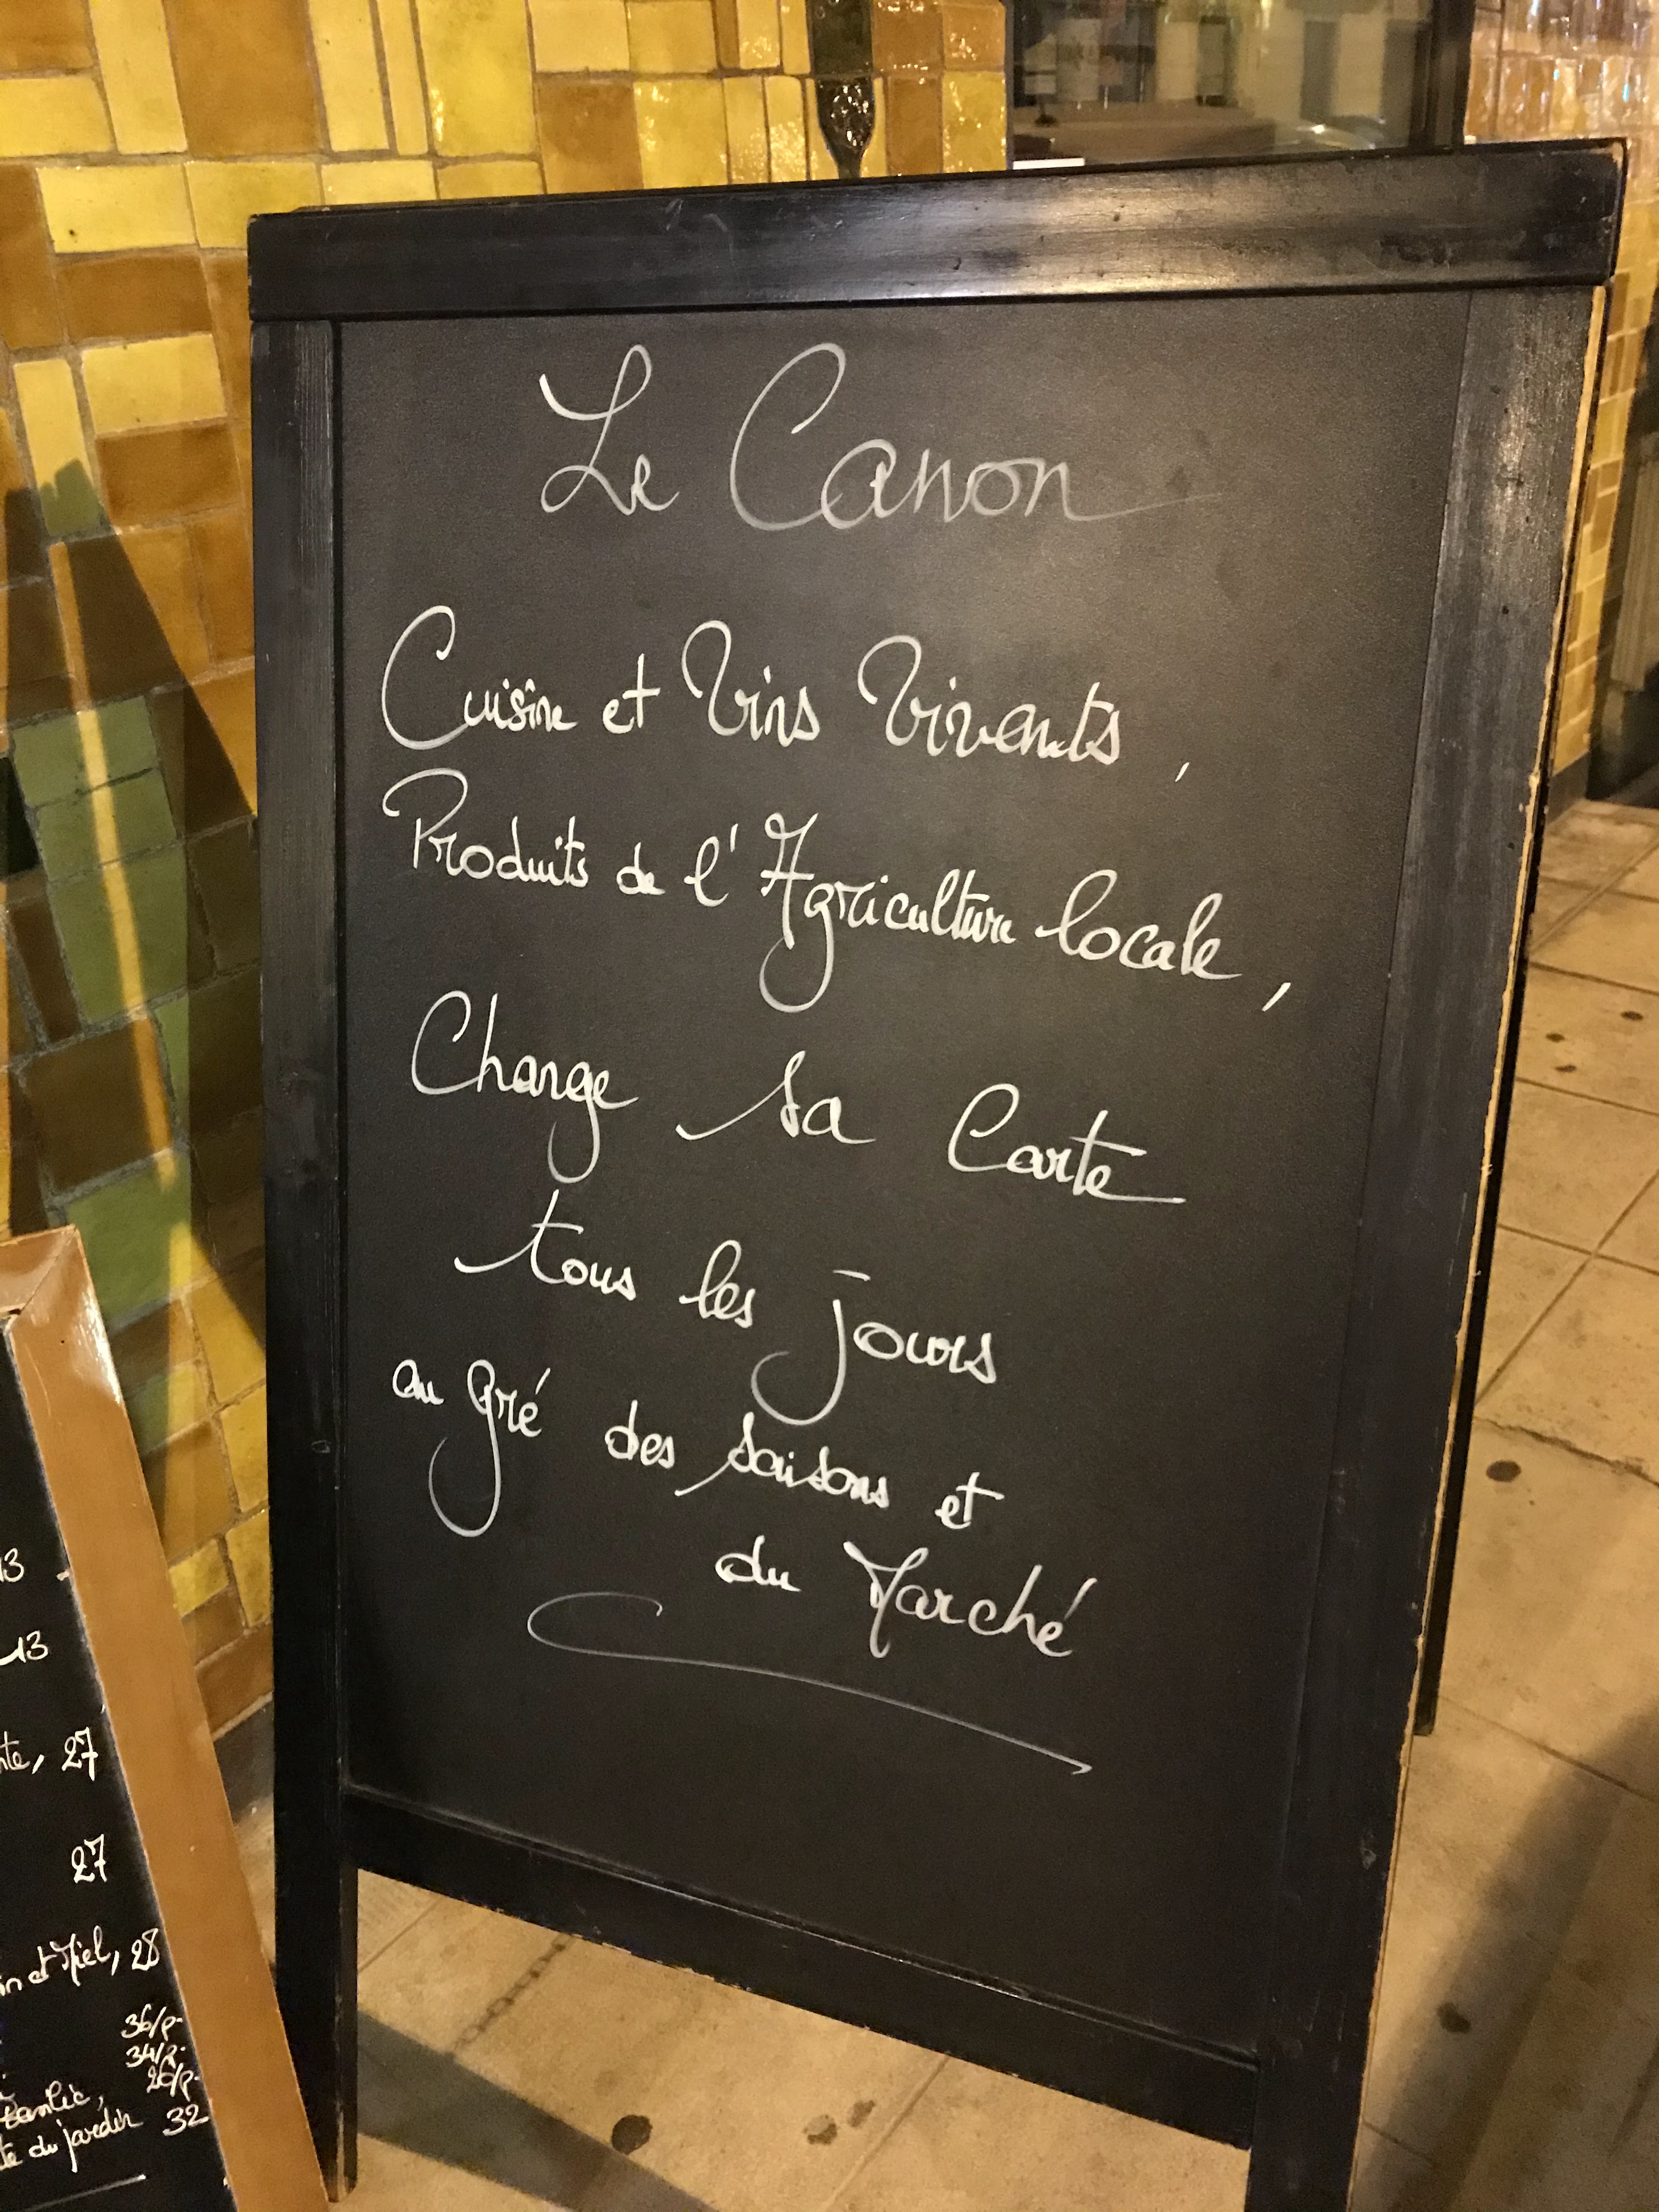 Le Canon
Cuisine et Vins Vivants,
Produits de l'Agriculture locale,
Change sa Carte
tous les jours
au gré des saisons et
du Marché
13
13
27
27
et Miel, 28
36/p.
34/p.
26/p.
du jardin 32